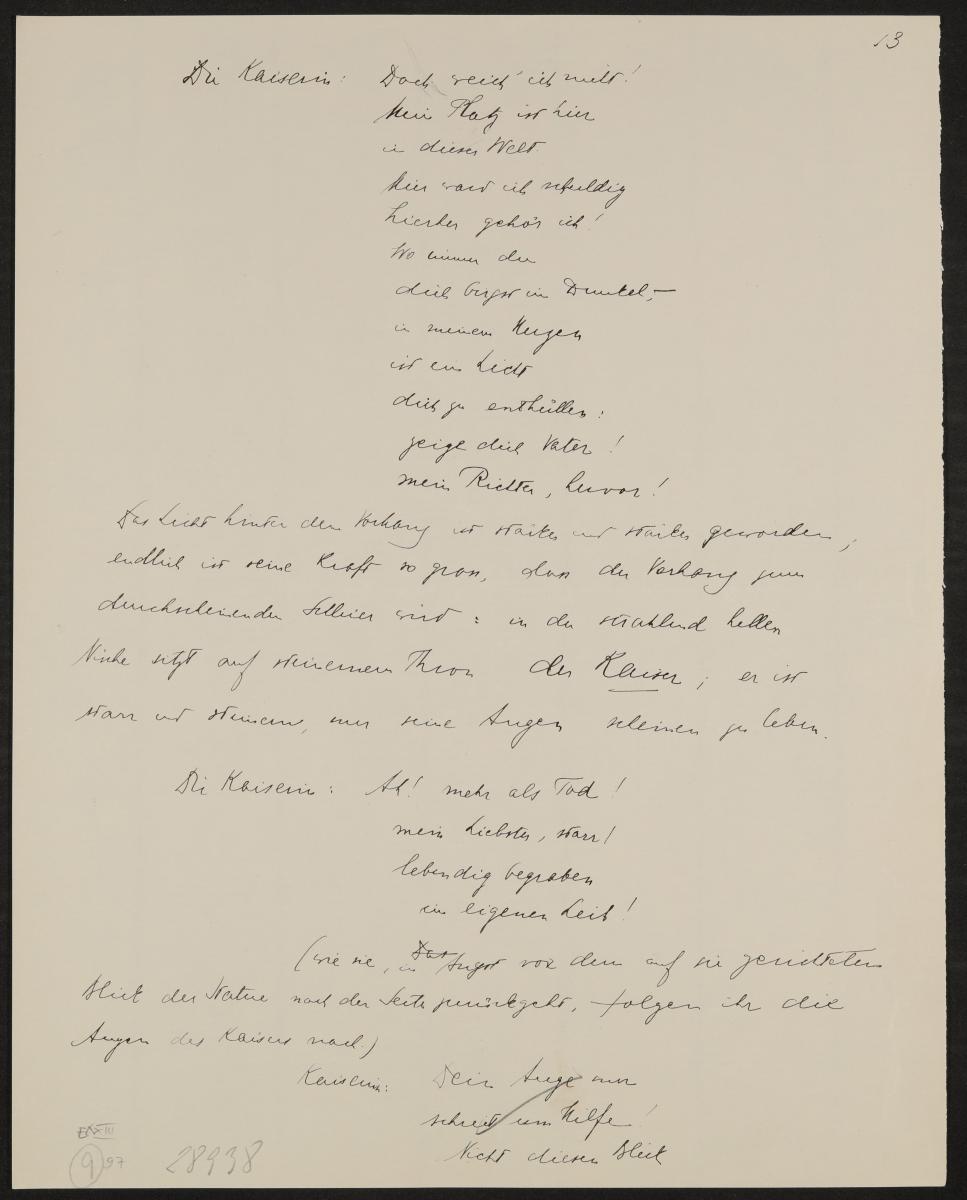 13
Die Kaiserin: Doch weich' ich nicht!
Mein Platz ist hier
in dieser Welt.
Hier ward ich schuldig
hierher gehör ich!
Wo immer du
dich birgst im Dunkel, –
in meinem Herzen
ist ein Licht
dich zu enthüllen:
zeige dich Vater!
mein Richter, hervor!
Das Licht hinter dem Vorhang ist stärker und stärker geworden;
endlich ist seine Kraft so gross, dass der Vorhang zum
durchscheinenden Schleier wird: in der strahlend hellen
Nische sitzt auf steinernem Thron der Kaiser; er ist
starr und steinern, nur seine Augen scheinen zu leben.
Die Kaiserin: Ah! mehr als Tod!
mein Liebster, starr!
lebendig begraben
im eigenen Leib!
(wie sie, in Angst vor dem auf sie gerichteten
Blick der Statue nach der Seite zurückgeht, folgen ihr die
Augen des Kaisers nach.)
Kaiserin: Dein Auge nur
schreit um Hilfe!
Nicht diesen Blick
E IV XIII
9 97 28938